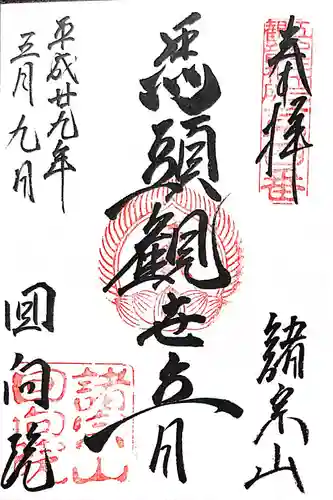 奉拝
諸宗山
馬頭觀世音
平成廿九年
五月九日
回向院
諸宗山
回向院